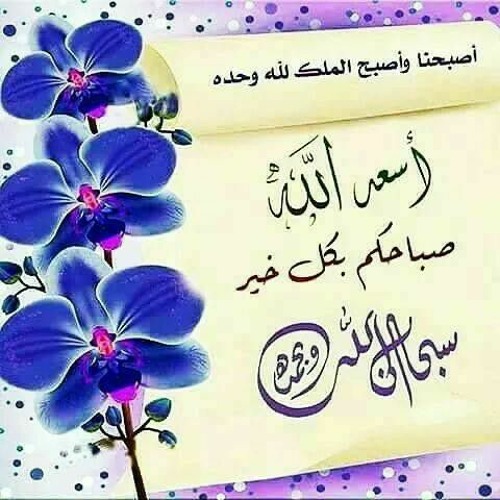 أصبحنا وأصبح الملك لله وحده
أسعد الله
صباحكم بكل خير
سبحان الله وبحمده